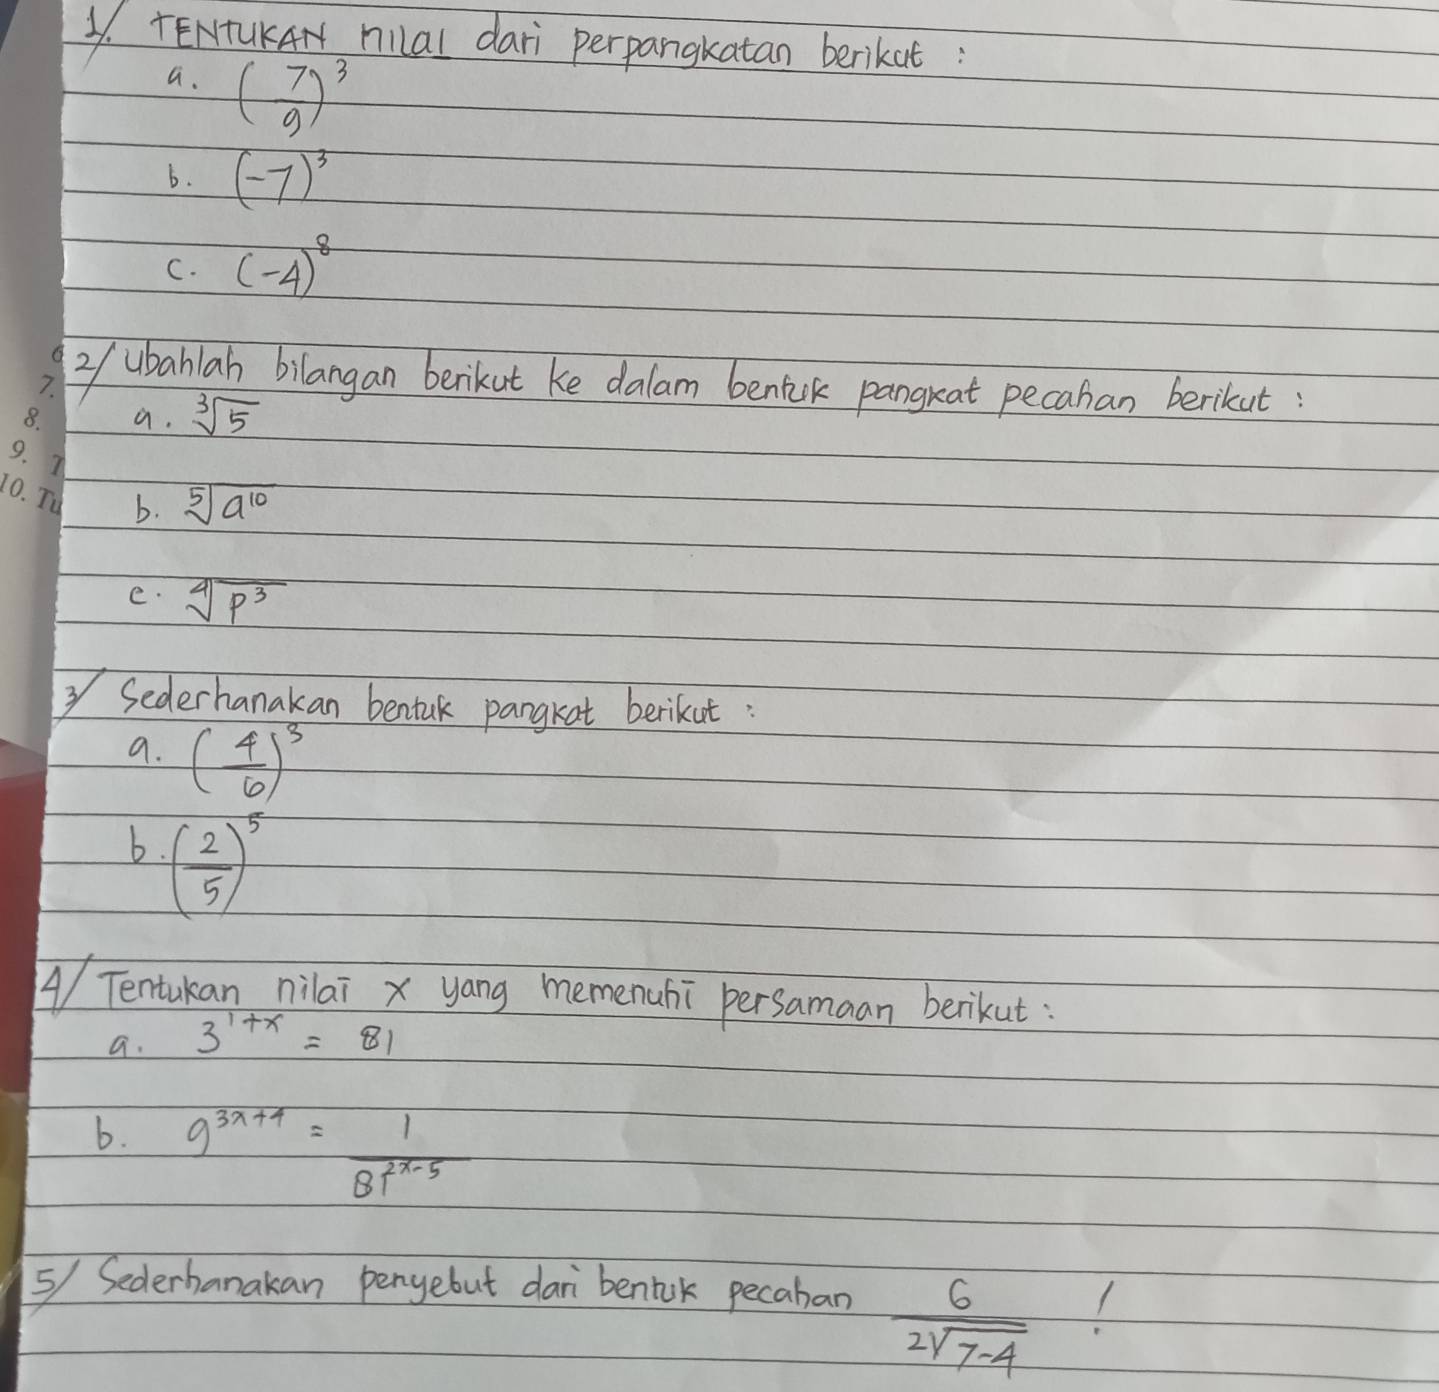 1/. TENTUKAN nilai dari perpangkatan berikut :
a. (7/9)^3
b. (-7)^3
c. (-4)^8
6
2/ Ubahlah bilangan berikut ke dalam bentuk pangkat pecahan berikut :
7.
8.
a. ∛5
9. T
10. Tu
b. ⁵√a^10
c. ⁴√p^3
3/ Sederhanakan bentuk pangkat berikut :
a. (4/6)^3
b. (2/5)^5
4/ Tentukan nilai x yang memenuhi persamaan berikut :
a. 3^1+x = 81
b. 9^3x+4 = 1/81^2x-5
5/ Sederhanakan penyebut dari bentuk pecahan 6/2√7-4 !